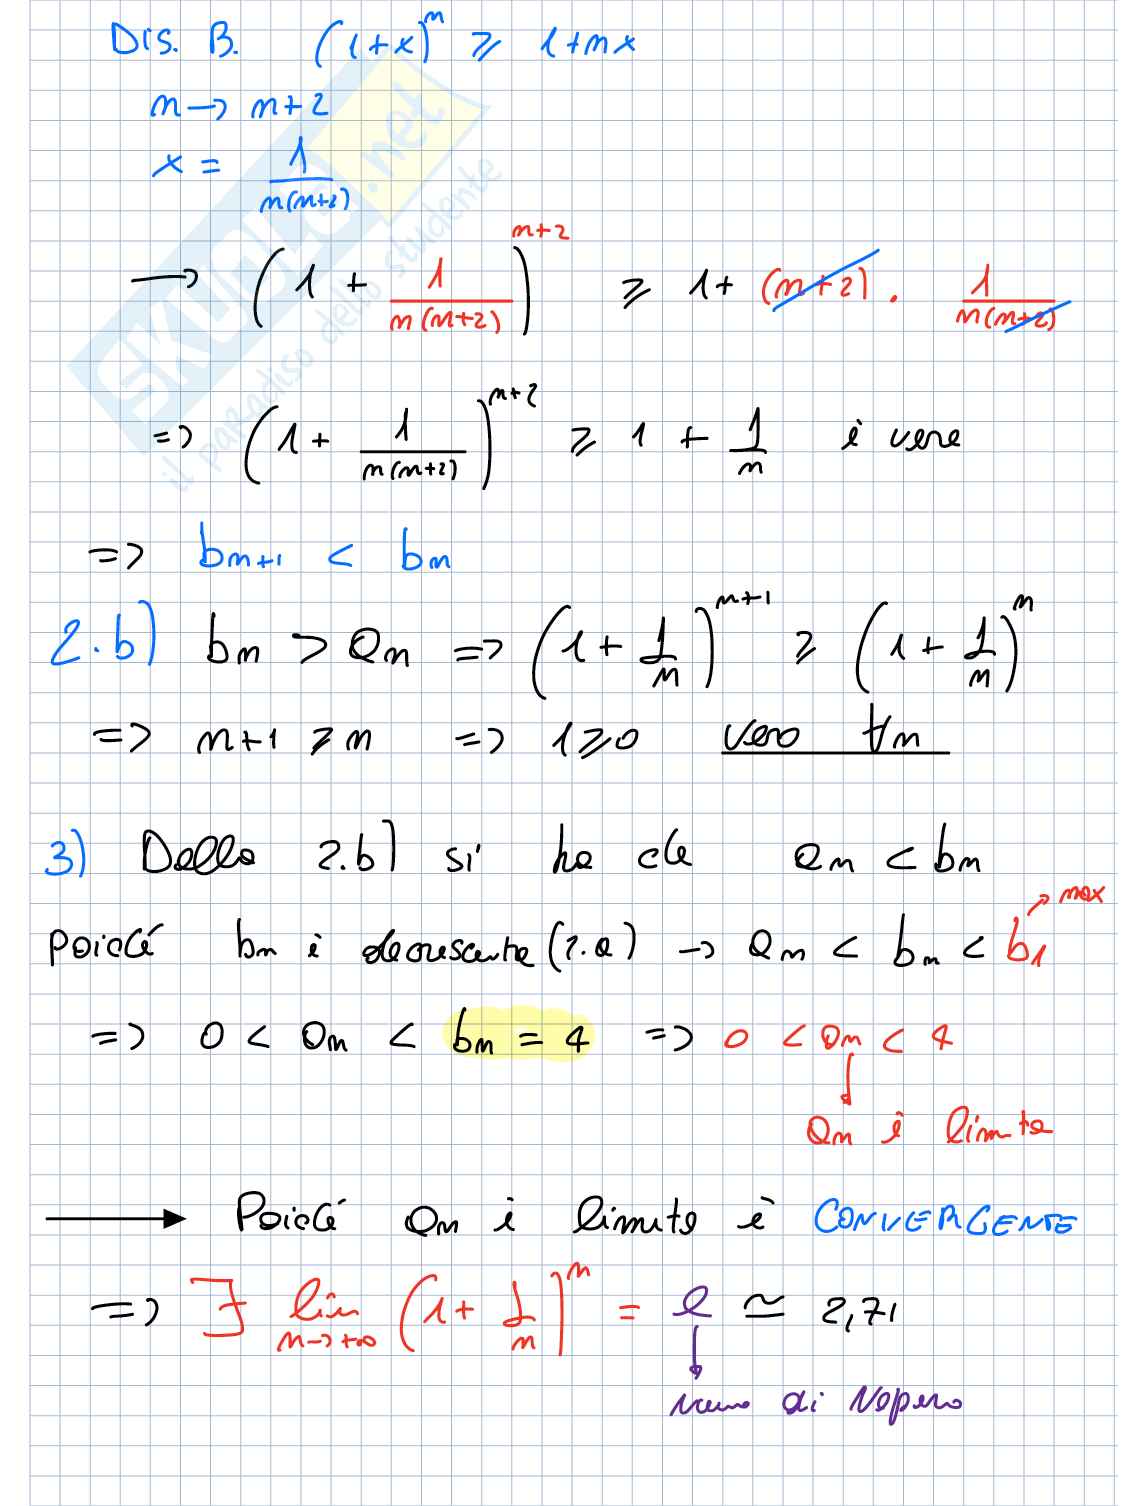 Dis. B. (1+x)^n ⩾ 1+nx
n → n+2
x = 1/(n(n+2))
→ (1 + 1/(n(n+2)))^(n+2) ⩾ 1+ (n+2) · 1/(n(n+2))
=> (1 + 1/(n(n+2)))^(n+2) ⩾ 1 + 1/n è vera
=> b_(n+1) < b_n
2.b) b_n > a_n => (1 + 1/n)^(n+1) ⩾ (1 + 1/n)^n
=> n+1 ⩾ n => 1⩾0 vero ∀n
3) Dalla 2.b) si ha che a_n < b_n
max
Poiché b_n è decrescente (2.a) → a_n < b_n < b_1
=> 0 < a_n < b_n = 4 => 0 < a_n < 4
a_n è limitata
→ Poiché a_n è limitata è CONVERGENTE
=> ∃ lim n→+∞ (1 + 1/n)^n = e ≃ 2,71
numero di Nepero
SKUOLA.net
il paradiso dello studente